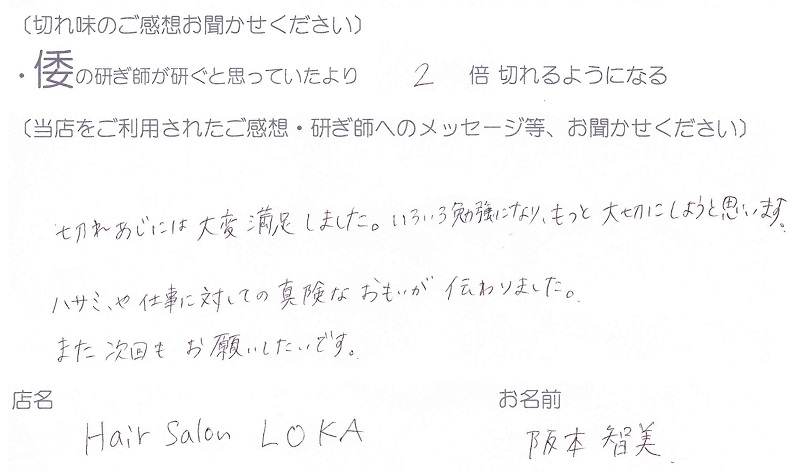 （切れ味のご感想お聞かせください）
・倭の研ぎ師が研ぐと思っていたより 2 倍 切れるようになる
（当店をご利用されたご感想・研ぎ師へのメッセージ等、お聞かせください）
切れあじには大変満足しました。いろいろ勉強になり、もっと大切にしようと思います。
ハサミ、や仕事に対しての真険なおもいが伝わりました。
また次回もお願いしたいです。
店名 お名前
Hair Salon LOKA 阪本智美